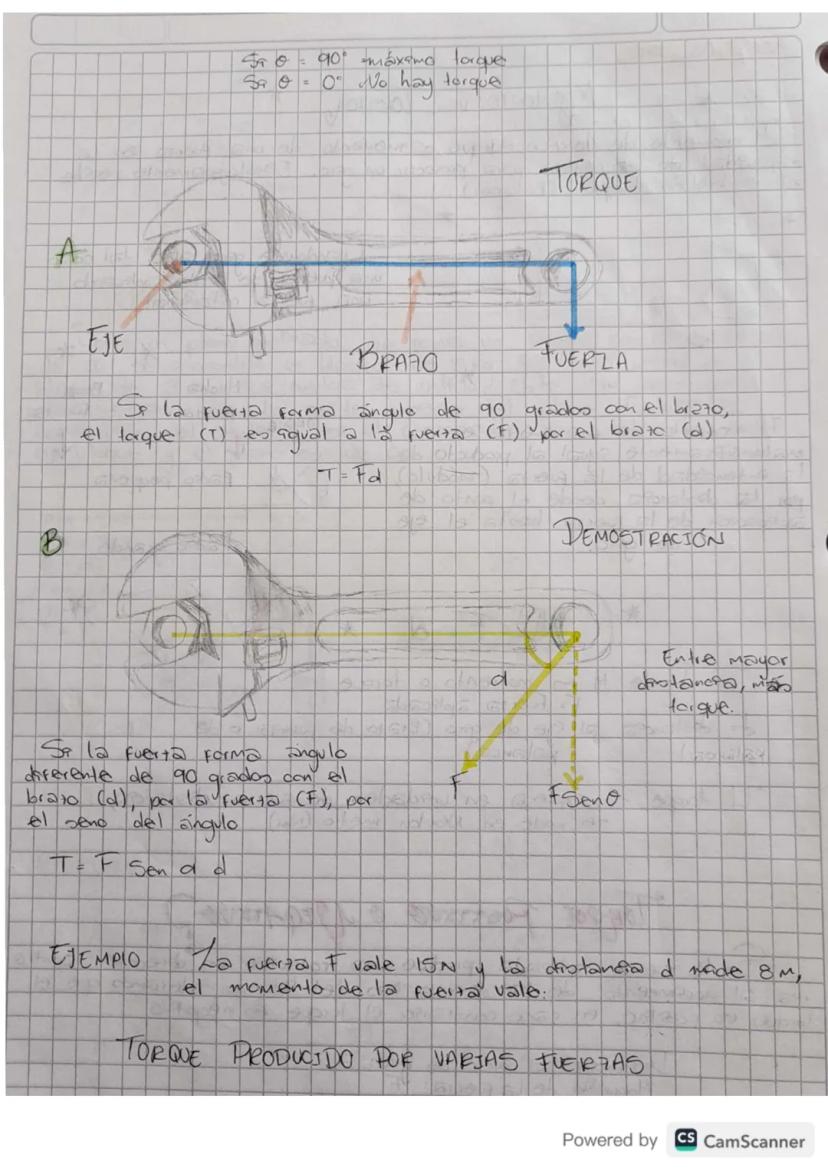 Si θ = 90° máximo torque
Si θ = 0° No hay torque
TORQUE
A
EJE
BRAZO
FUERZA
Si la fuerza forma ángulo de 90 grados con el brazo,
el torque (T) es igual a la fuerza (F) por el brazo (d)
T = Fd
B
DEMOSTRACIÓN
Entre mayor
distancia, más
torque.
α
F
F Sen θ
Si la fuerza forma ángulo
diferente de 90 grados con el
brazo (d), por la fuerza (F), por
el seno del ángulo
T = F Sen α d
EJEMPLO La fuerza F vale 15N y la distancia d mide 8 m,
el momento de la fuerza vale:
TORQUE PRODUCIDO POR VARIAS FUERZAS
Powered by CS CamScanner